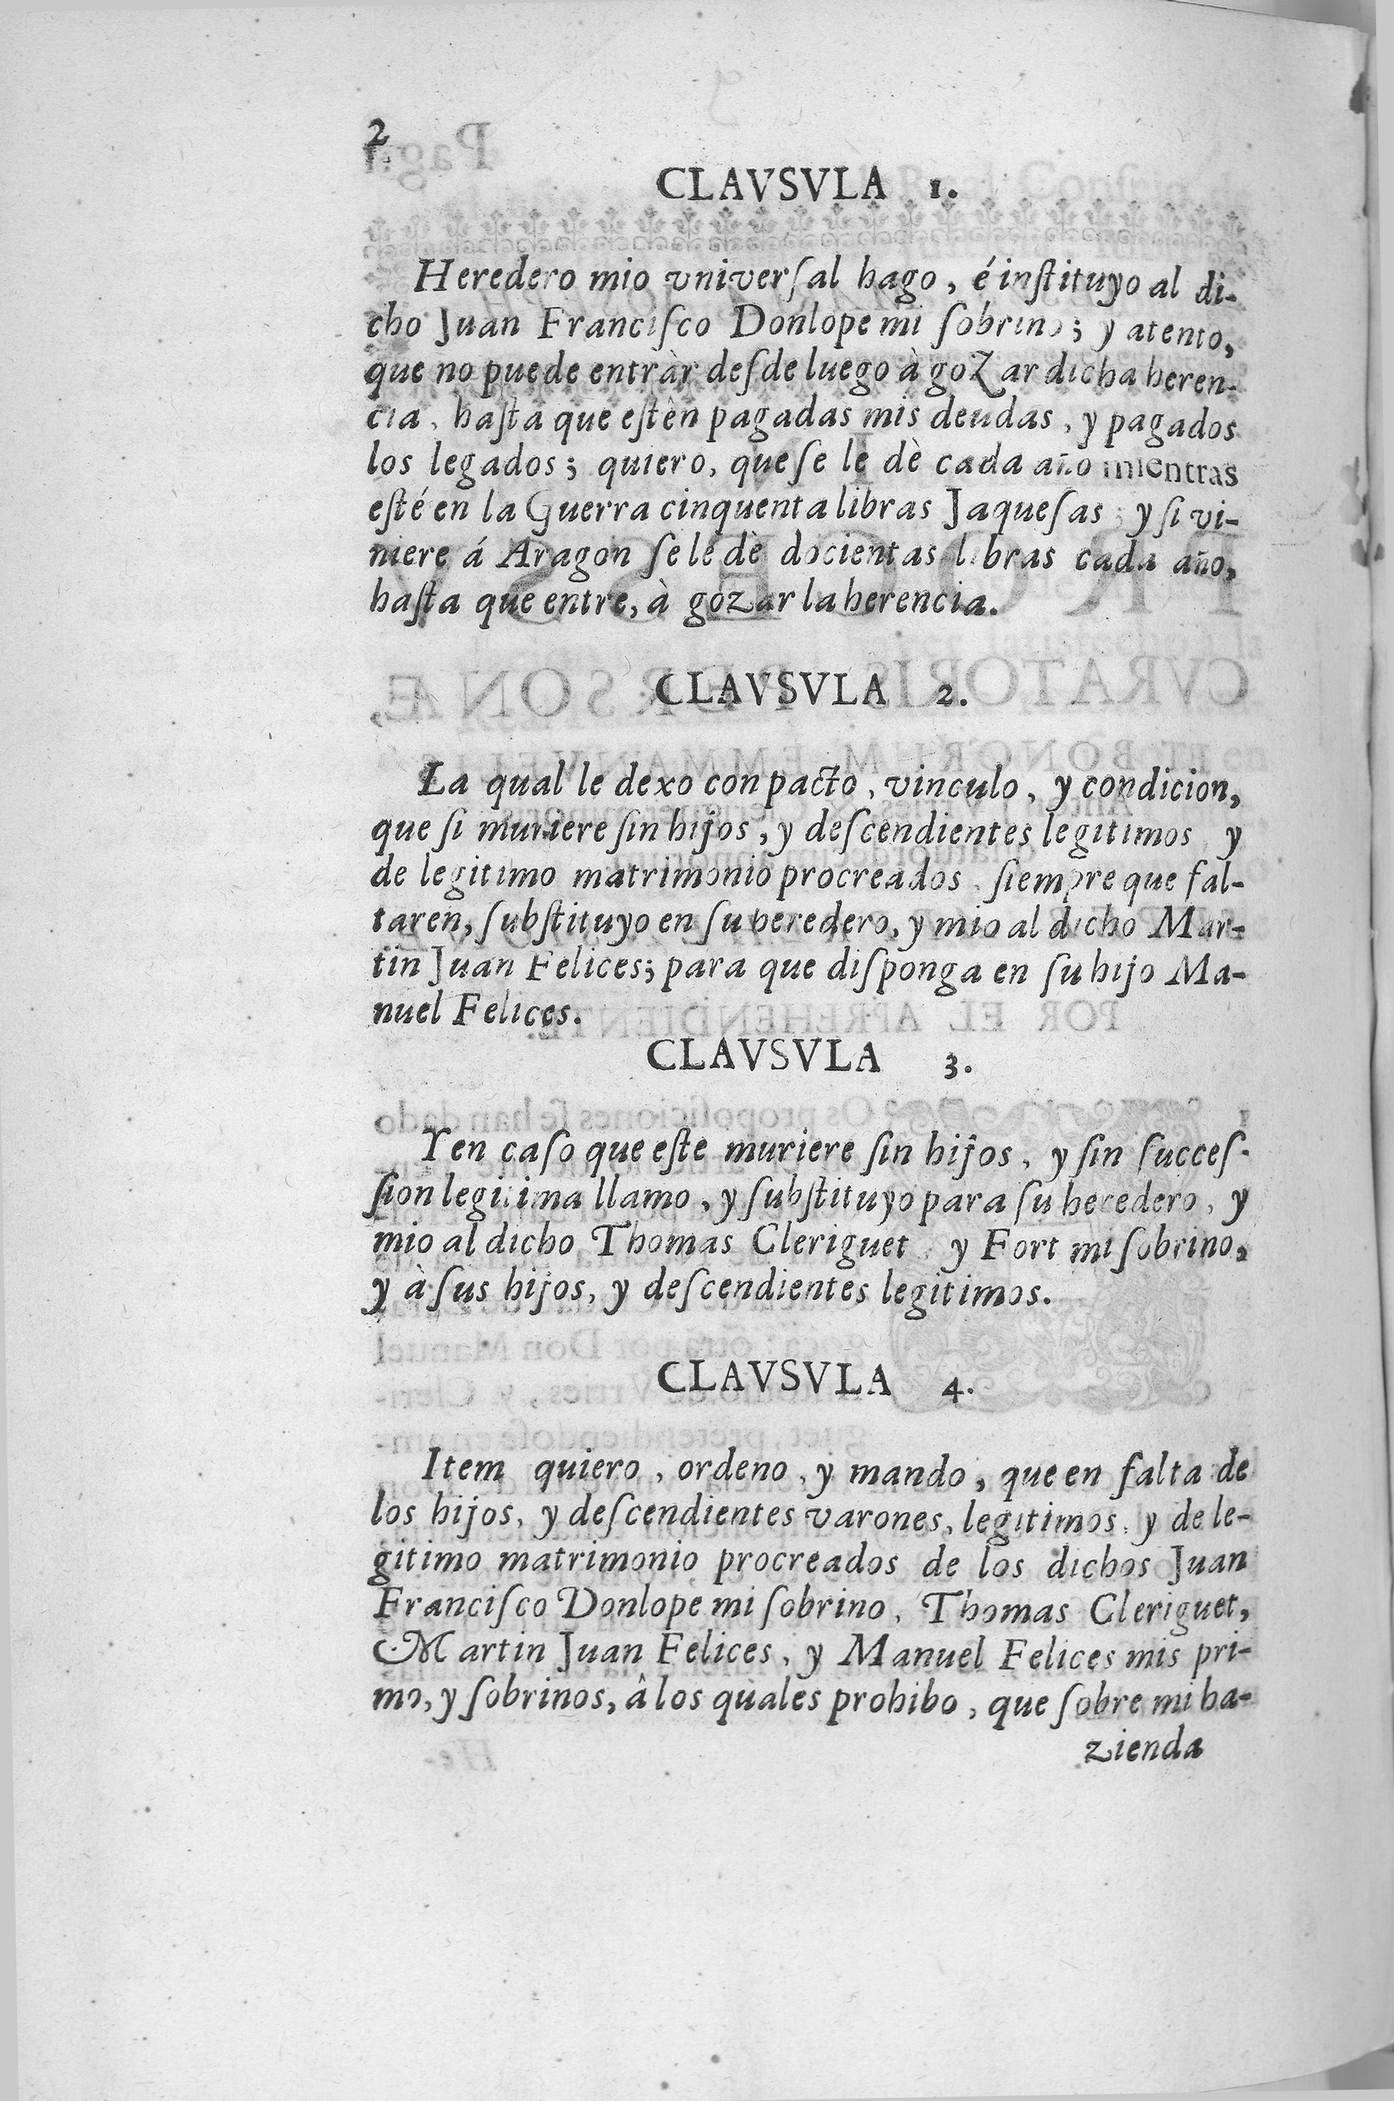 2
CLAVSVLA 1.
Heredero mio vniverſal hago, é inſtituyo al di-
cho Juan Franciſco Donlope mi ſobrino; y atento,
que no puede entràr deſde luego à goZar dicha heren-
cia, haſta que estèn pagadas mis deudas, y pagados
los legados; quiero, que ſe le dè cada año mientras
eſté en la Guerra cinquenta libras Jaqueſas; y ſi vi-
niere á Aragon ſe le dè docientas libras cada año,
haſta que entre, à gozar la herencia.
CLAVSVLA 2.
La qual le dexo con pacto, vinculo, y condicion,
que ſi muriere ſin hijos, y deſcendientes legitimos, y
de legitimo matrimonio procreados, ſiempre que fal-
taren, ſubſtituyo en ſu heredero, y mio al dicho Mar-
tin Juan Felices; para que diſponga en ſu hijo Ma-
nuel Felices.
CLAVSVLA 3.
Y en caſo que eſte muriere ſin hijos, y ſin ſucceſ-
ſion legitima llamo, y ſubſtituyo para ſu heredero, y
mio al dicho Thomas Cleriguet, y Fort mi ſobrino,
y à ſus hijos, y deſcendientes legitimos.
CLAVSVLA 4.
Item quiero, ordeno, y mando, que en falta de
los hijos, y deſcendientes varones, legitimos, y de le-
gitimo matrimonio procreados de los dichos Juan
Franciſco Donlope mi ſobrino, Thomas Cleriguet,
Martin Juan Felices, y Manuel Felices mis pri-
mo, y ſobrinos, â los quales prohibo, que ſobre mi ha-
zienda